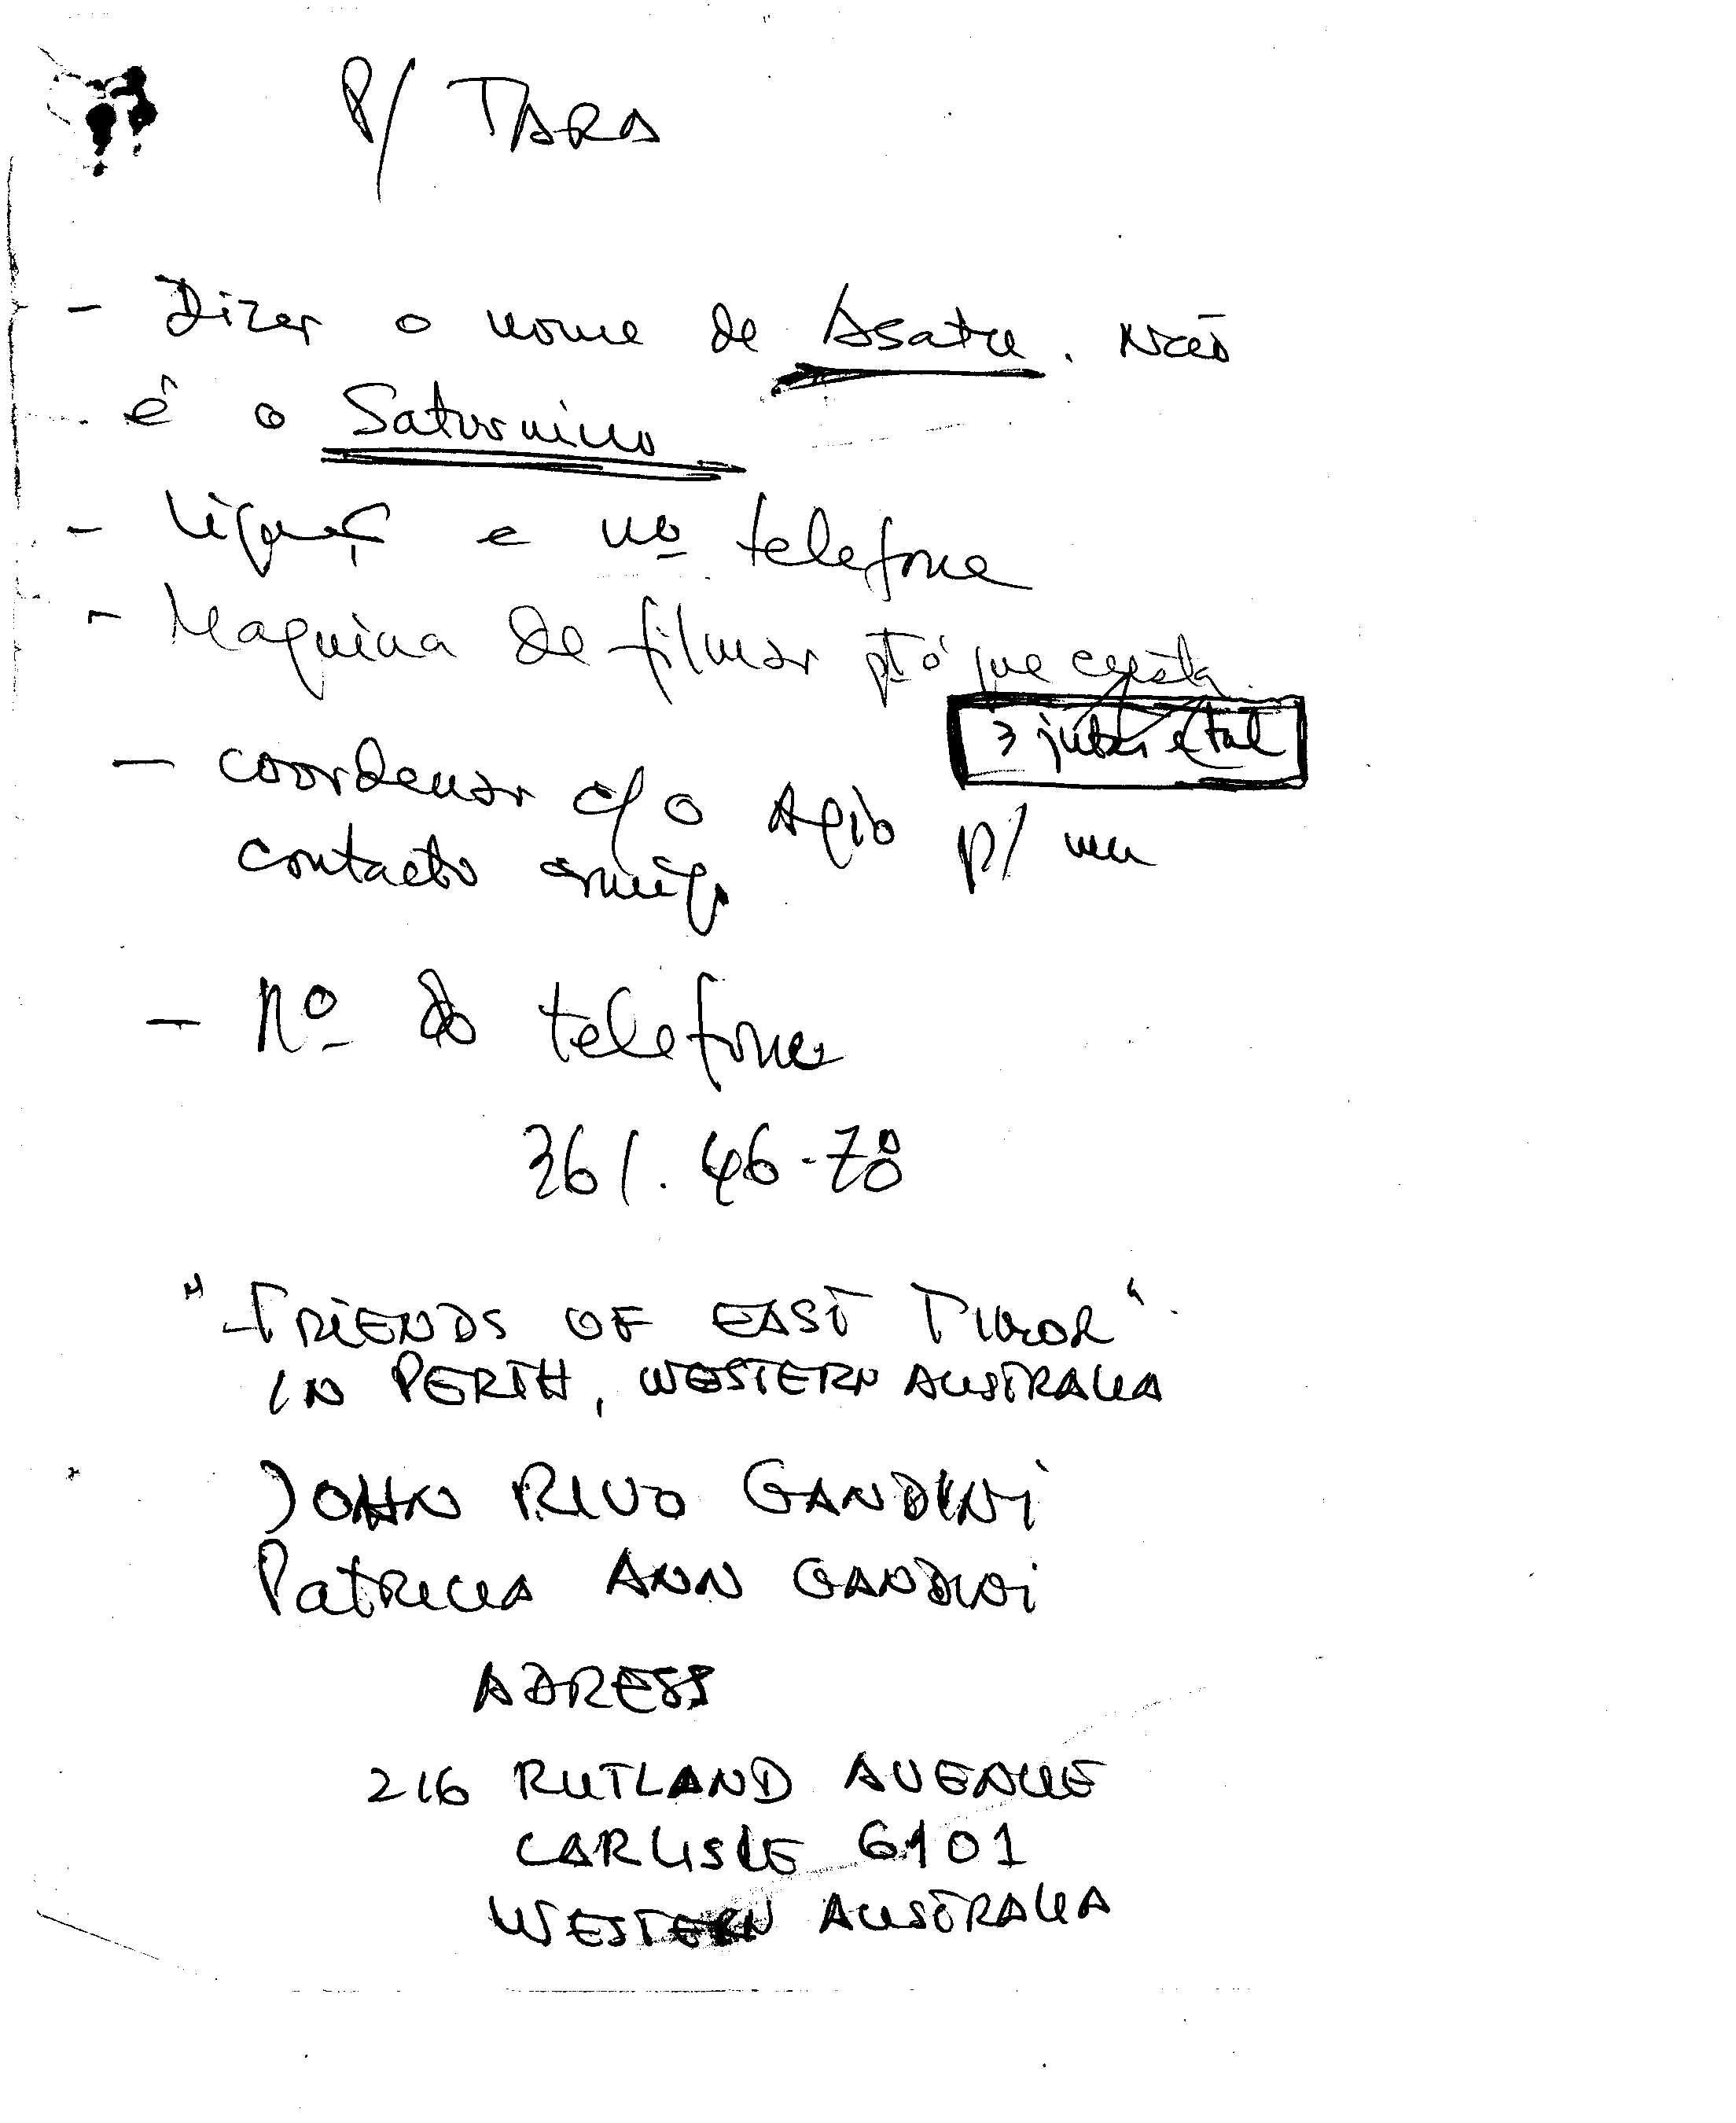 P/ TARA
- Dizer o nome de Asatre. Não
é o Saturnino
- e nº telefone
- Maquina de filmar
- coordenar c/ o Agio p/ um
contacto
- Nº do telefone
361.46-78
"FRIENDS OF EAST TIMOR"
IN PERTH, WESTERN AUSTRALIA
JOHN RIVO GANDINI
PATRICIA ANN GANDINI
ADRESS
216 RUTLAND AVENUE
CARLISLE 6101
WESTERN AUSTRALIA